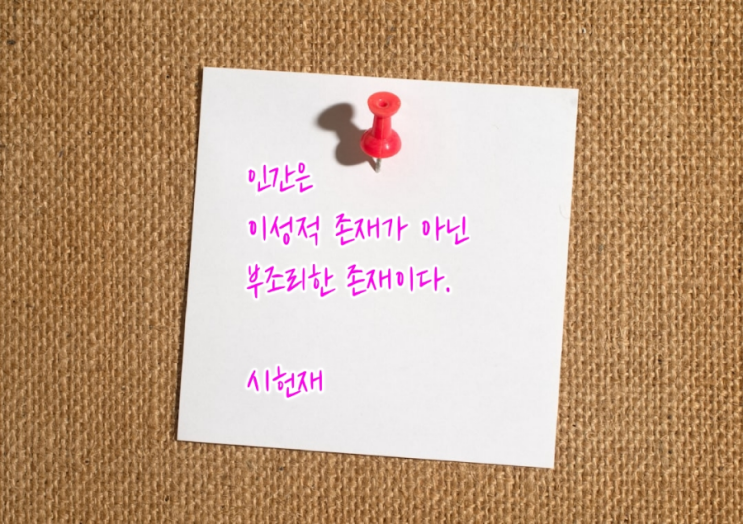 인간은
이성적 존재가 아닌
부조리한 존재이다.
시헌재